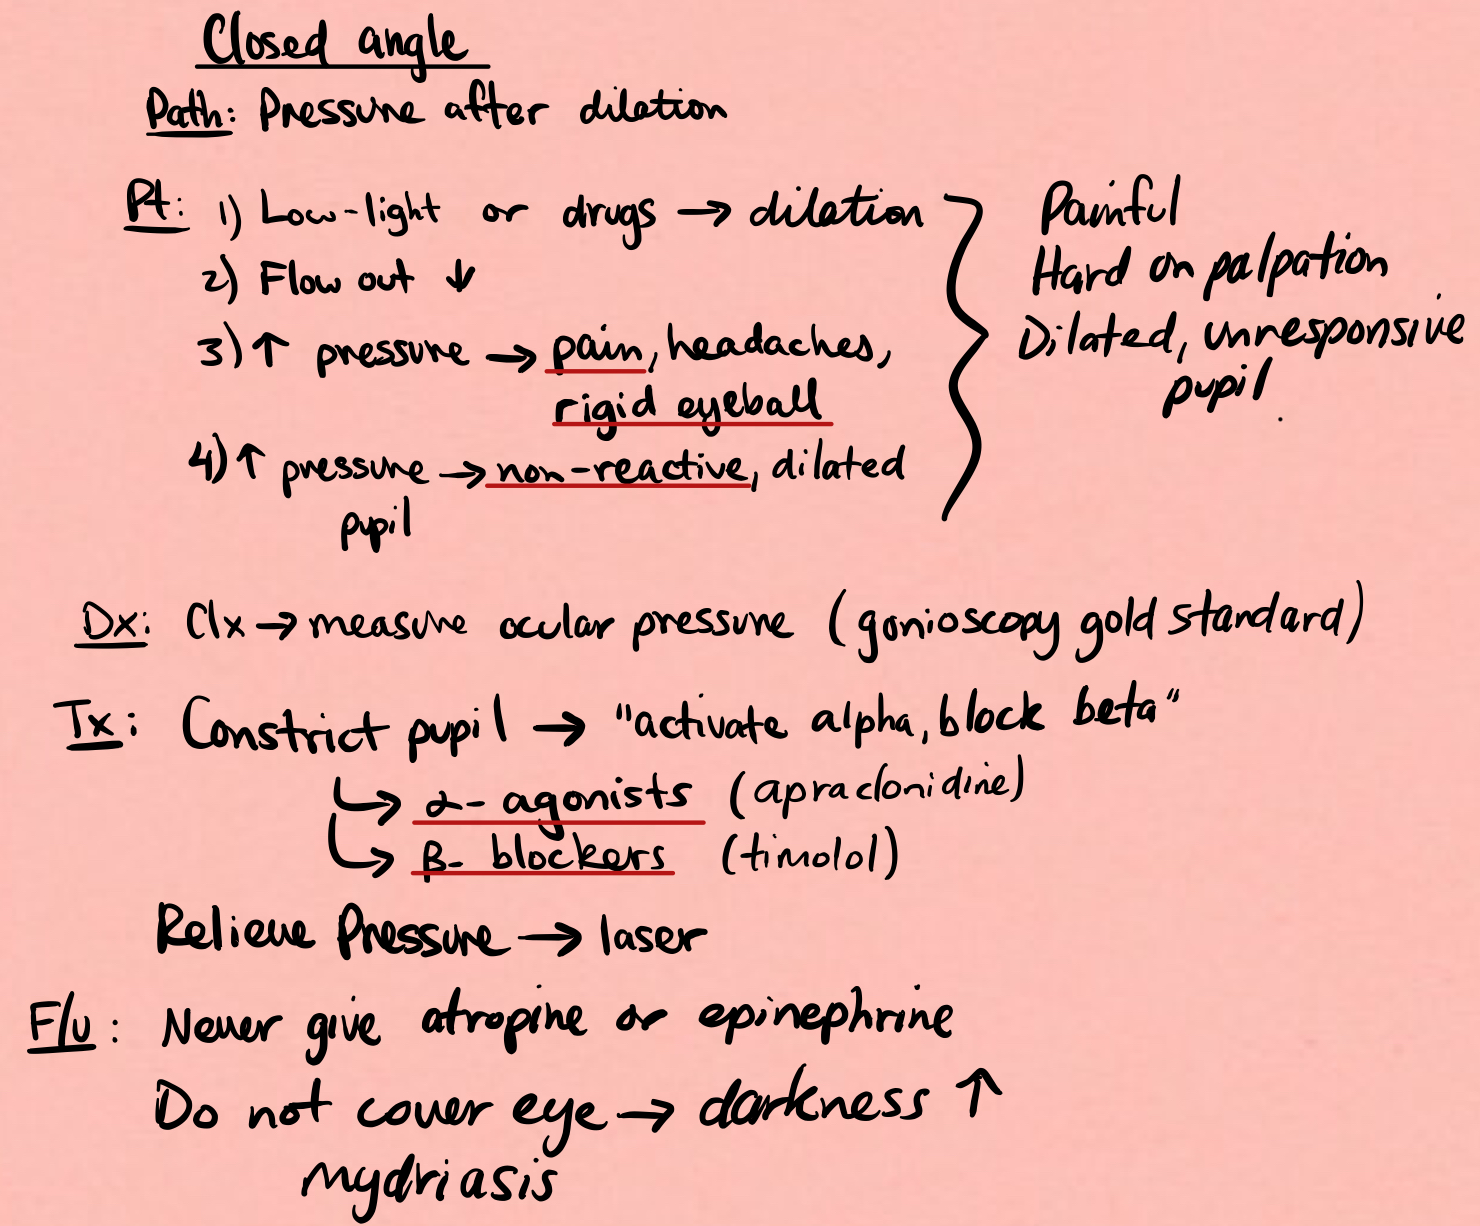 Closed angle
Path: Pressure after dilation
Pt: 1) Low-light or drugs → dilation
2) Flow out ↓
3) ↑ pressure → pain, headaches,
rigid eyeball
4) ↑ pressure → non-reactive, dilated
pupil
Painful
Hard on palpation
Dilated, unresponsive
pupil
Dx: Clx → measure ocular pressure (gonioscopy gold standard)
Tx: Constrict pupil → "activate alpha, block beta"
↳ α- agonists (apraclonidine)
↳ β- blockers (timolol)
Relieve Pressure → laser
F/u: Never give atropine or epinephrine
Do not cover eye → darkness ↑
mydriasis